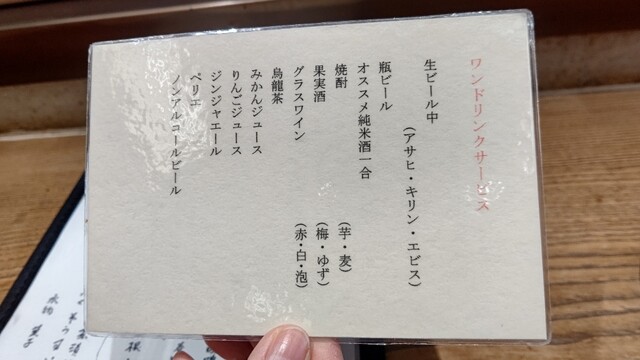 ワンドリンクサービス
生ビール中
(アサヒ・キリン・エビス)
瓶ビール
オススメ純米酒一合
焼酎 (芋・麦)
果実酒 (梅・ゆず)
グラスワイン (赤・白・泡)
烏龍茶
みかんジュース
りんごジュース
ジンジャエール
ペリエ
ノンアルコールビール